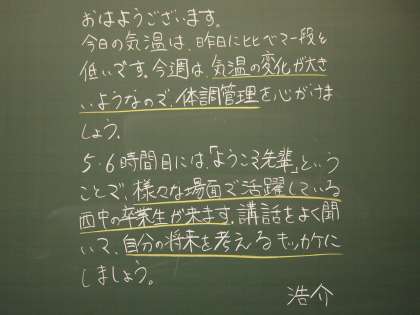 おはようございます。
今日の気温は、昨日にヒヒべて一段と
低いです。今週は、気温の変化が大き
いようなので、体調管理を心がけま
しょう。
5・6時間目には、「ようこそ先輩」という
ことで、様々な場面で活躍している
西中の卒業生が来ます。講話をよく聞
いて、自分の将来を考えるキッカケに
しましょう。
浩介